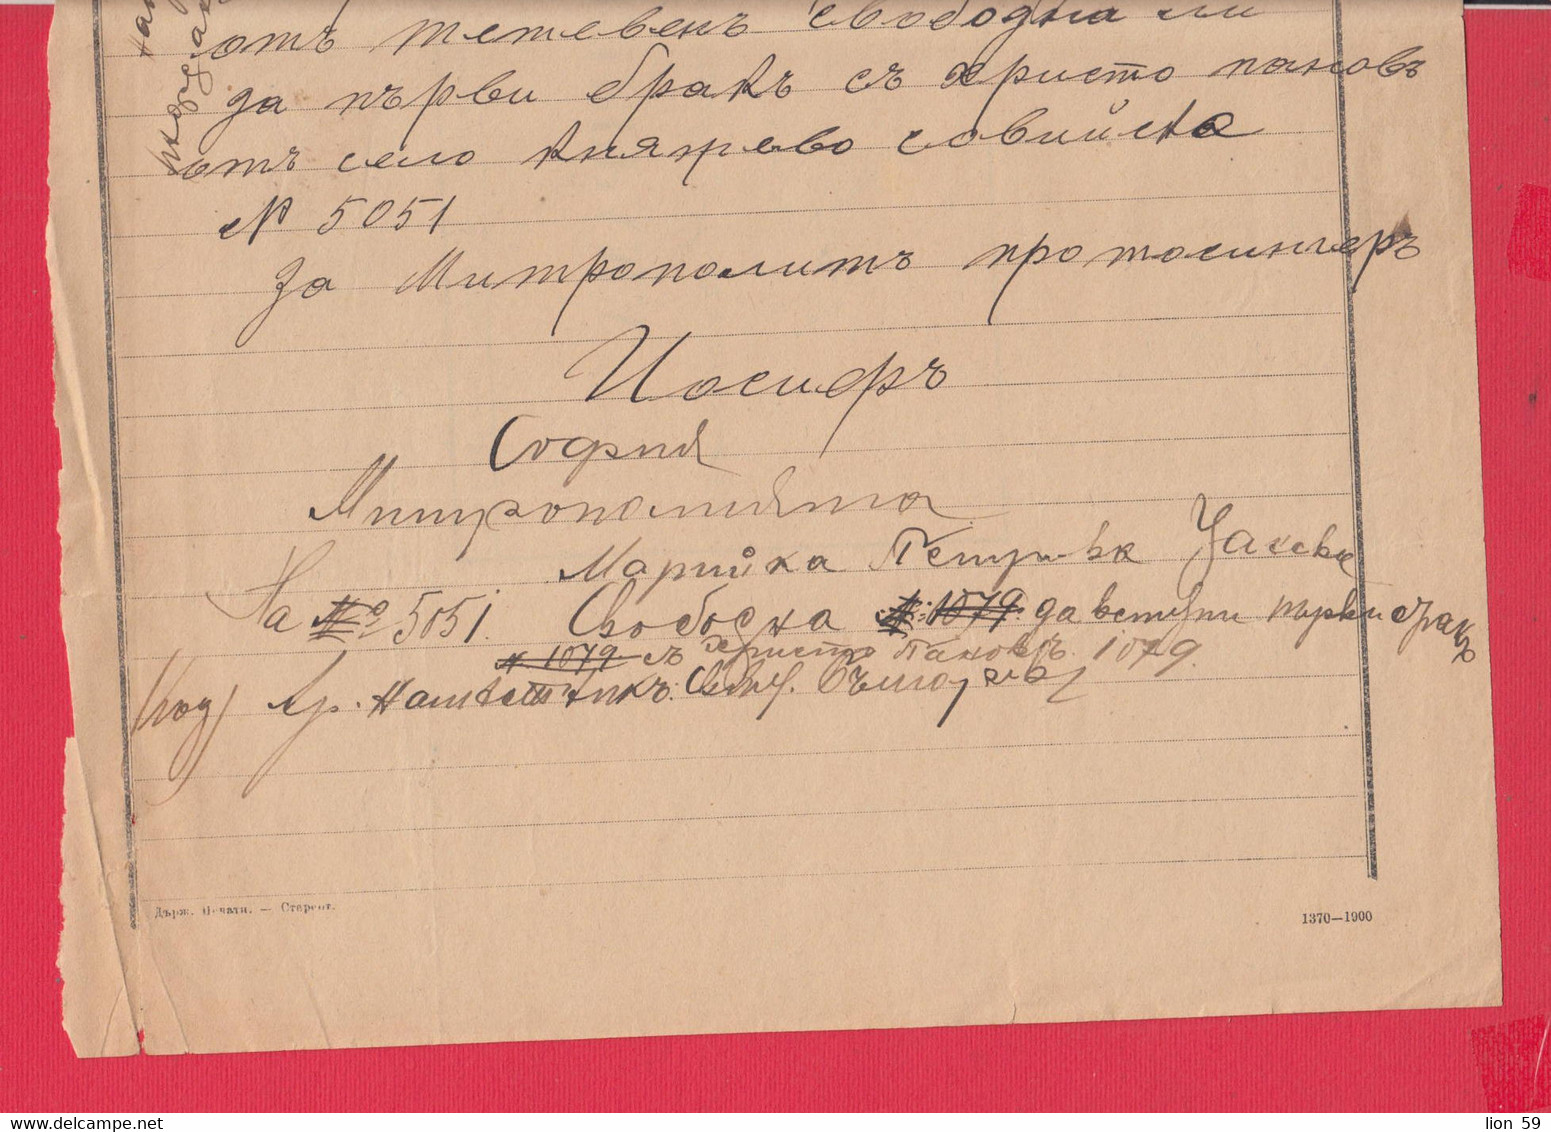 отъ тетевенъ свободна ли
да първи бракъ съ христо пановъ
отъ село княжево совийско
№ 5051
За Митрополитъ протосингеръ
Иосифъ
София
Митрополията
Марийка Петрова
На № 5051. Свободна № 1079. да встѫпи първи бракъ
№ 1079 съ христо Пановъ. 1079.
Държ. Печати. — Старсот.
1370—1900
lion 59